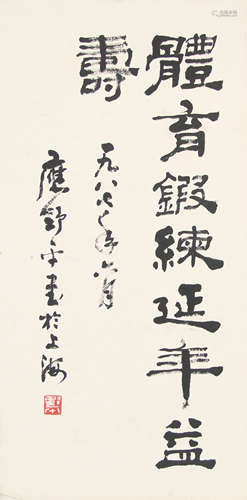 體育鍛練延年益
壽
一九八八年六月
應野平書於上海